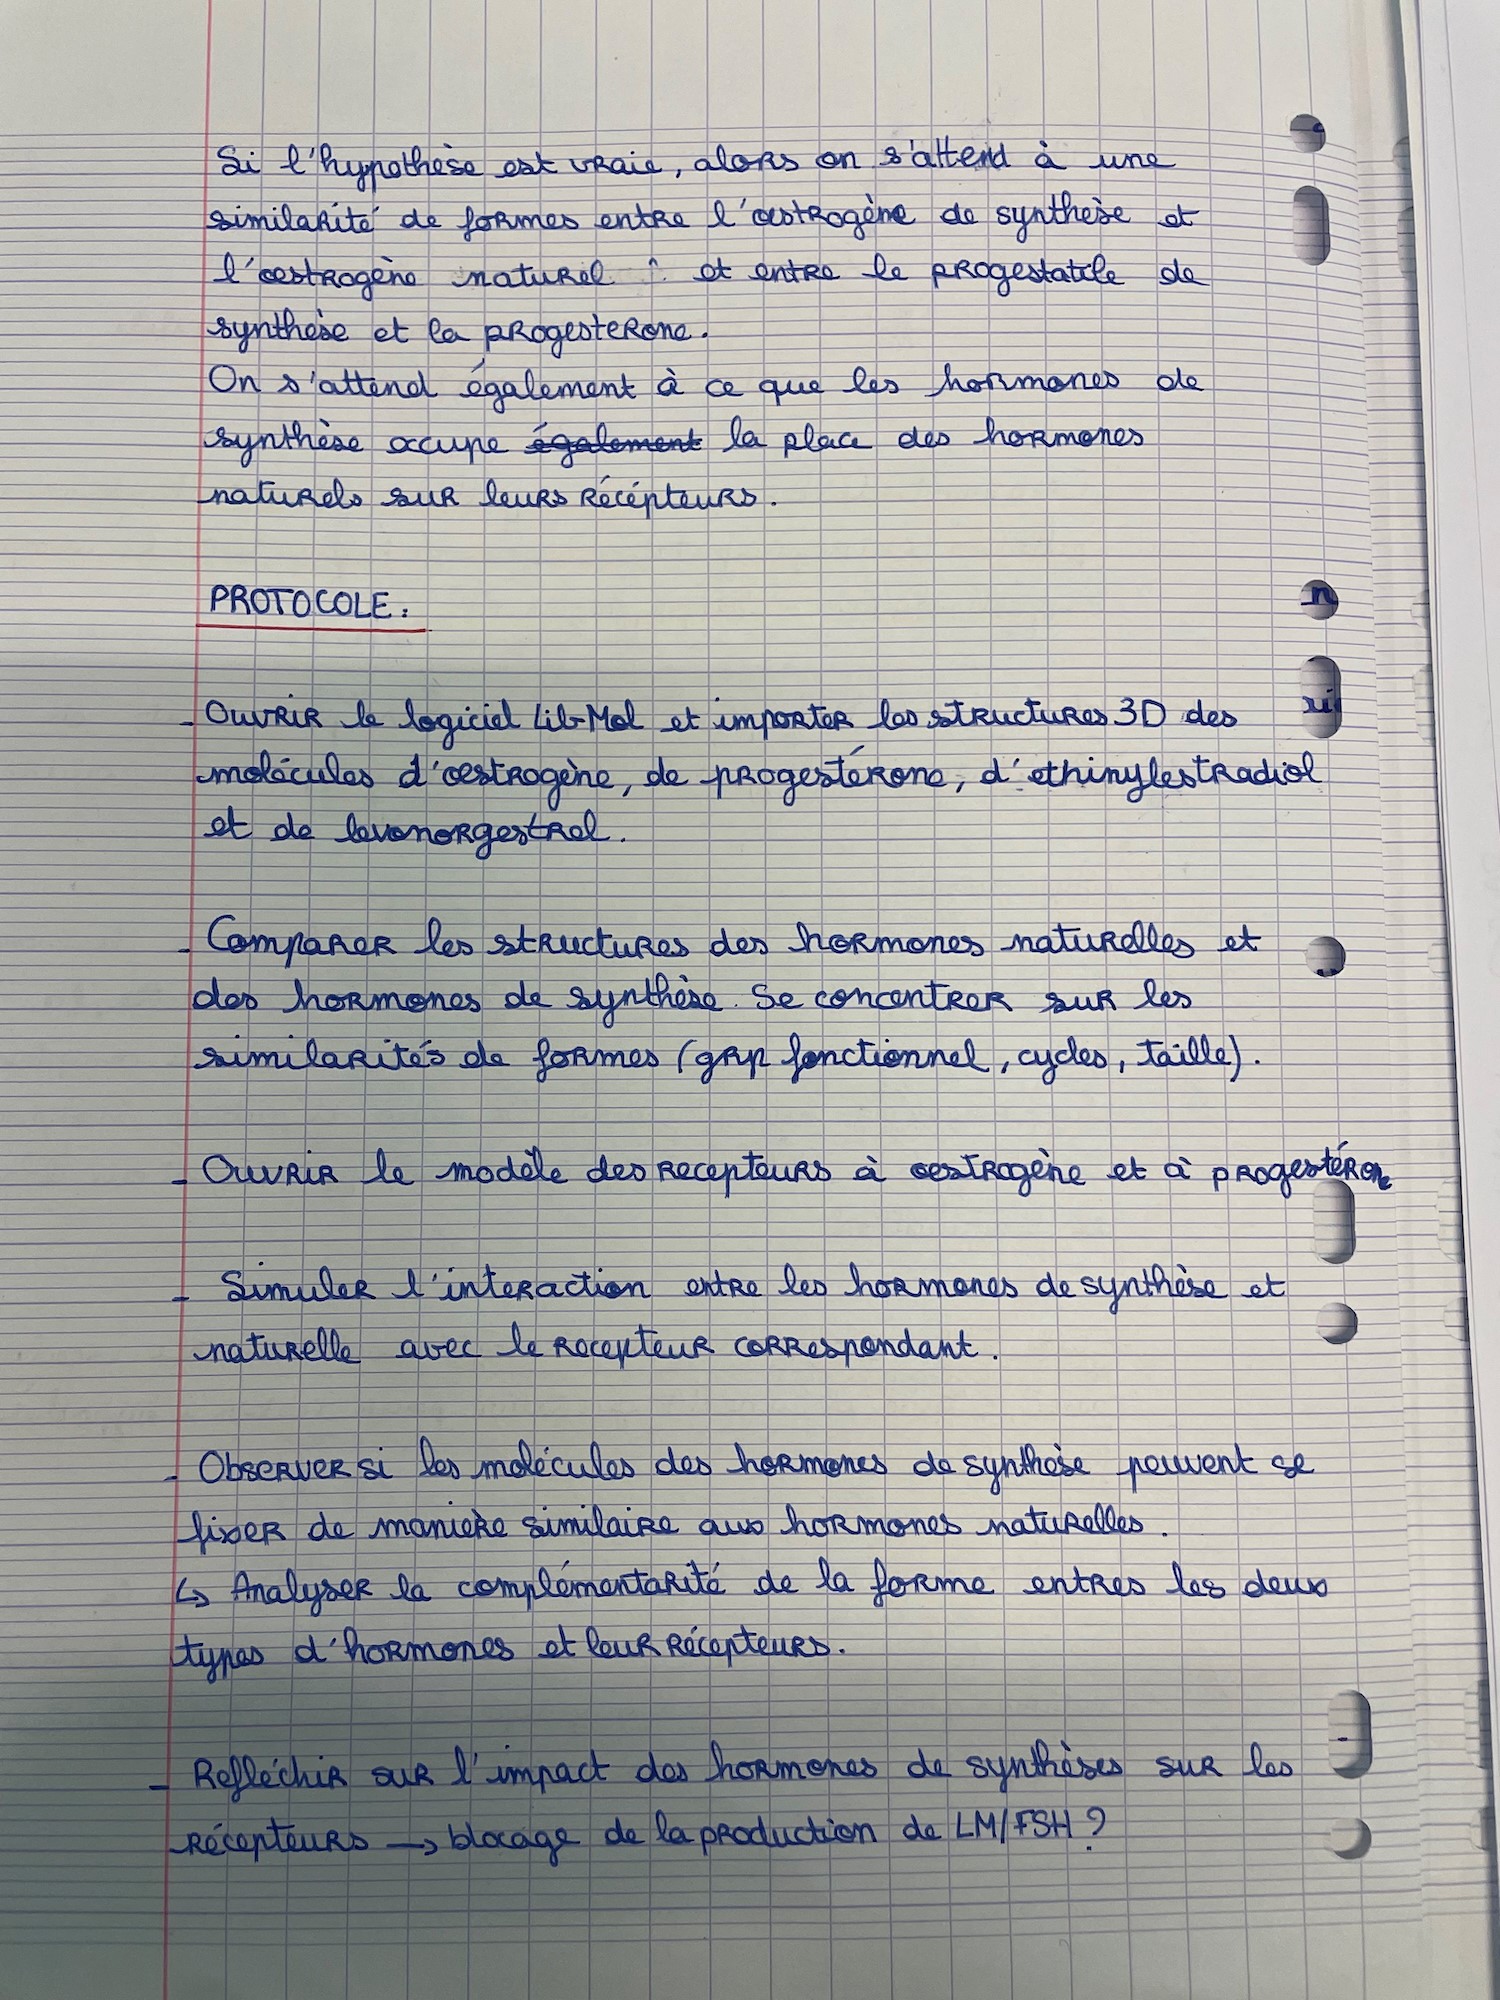 Si l'hypothèse est vraie, alors on s'attend à une
similarité de formes entre l'œstrogène de synthèse et
l'œstrogène naturel et entre le progestatile de
synthèse et la progesterone.
On s'attend également à ce que les hormones de
synthèse occupe également la place des hormones
naturels sur leurs récépteurs.
PROTOCOLE :
- Ouvrir le logiciel Lib-Mol et importer les structures 3D des
molécules d'œstrogène, de progestérone, d'ethinylestradiol
et de levonorgestrel.
- Comparer les structures des hormones naturelles et
des hormones de synthèse. Se concentrer sur les
similarités de formes (grp fonctionnel, cycles, taille).
- Ouvrir le modèle des recepteurs à œstrogène et à progestérone
- Simuler l'interaction entre les hormones de synthèse et
naturelle avec le recepteur correspondant.
- Observer si les molécules des hormones de synthèse peuvent se
fixer de manière similaire aux hormones naturelles.
↳ Analyser la complémentarité de la forme entres les deux
types d'hormones et leur récepteurs.
- Refléchir sur l'impact des hormones de synthèses sur les
récepteurs → blocage de la production de LM/FSH ?